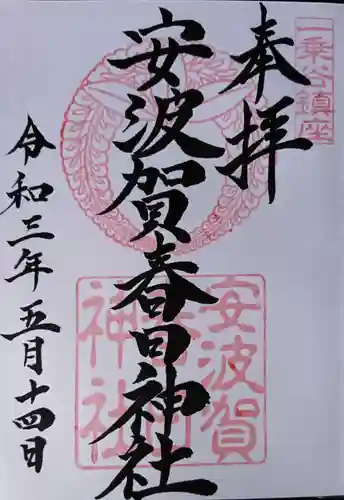 一乗谷鎮座
奉拝
安波賀春日神社
安波賀春日神社
令和三年五月十四日